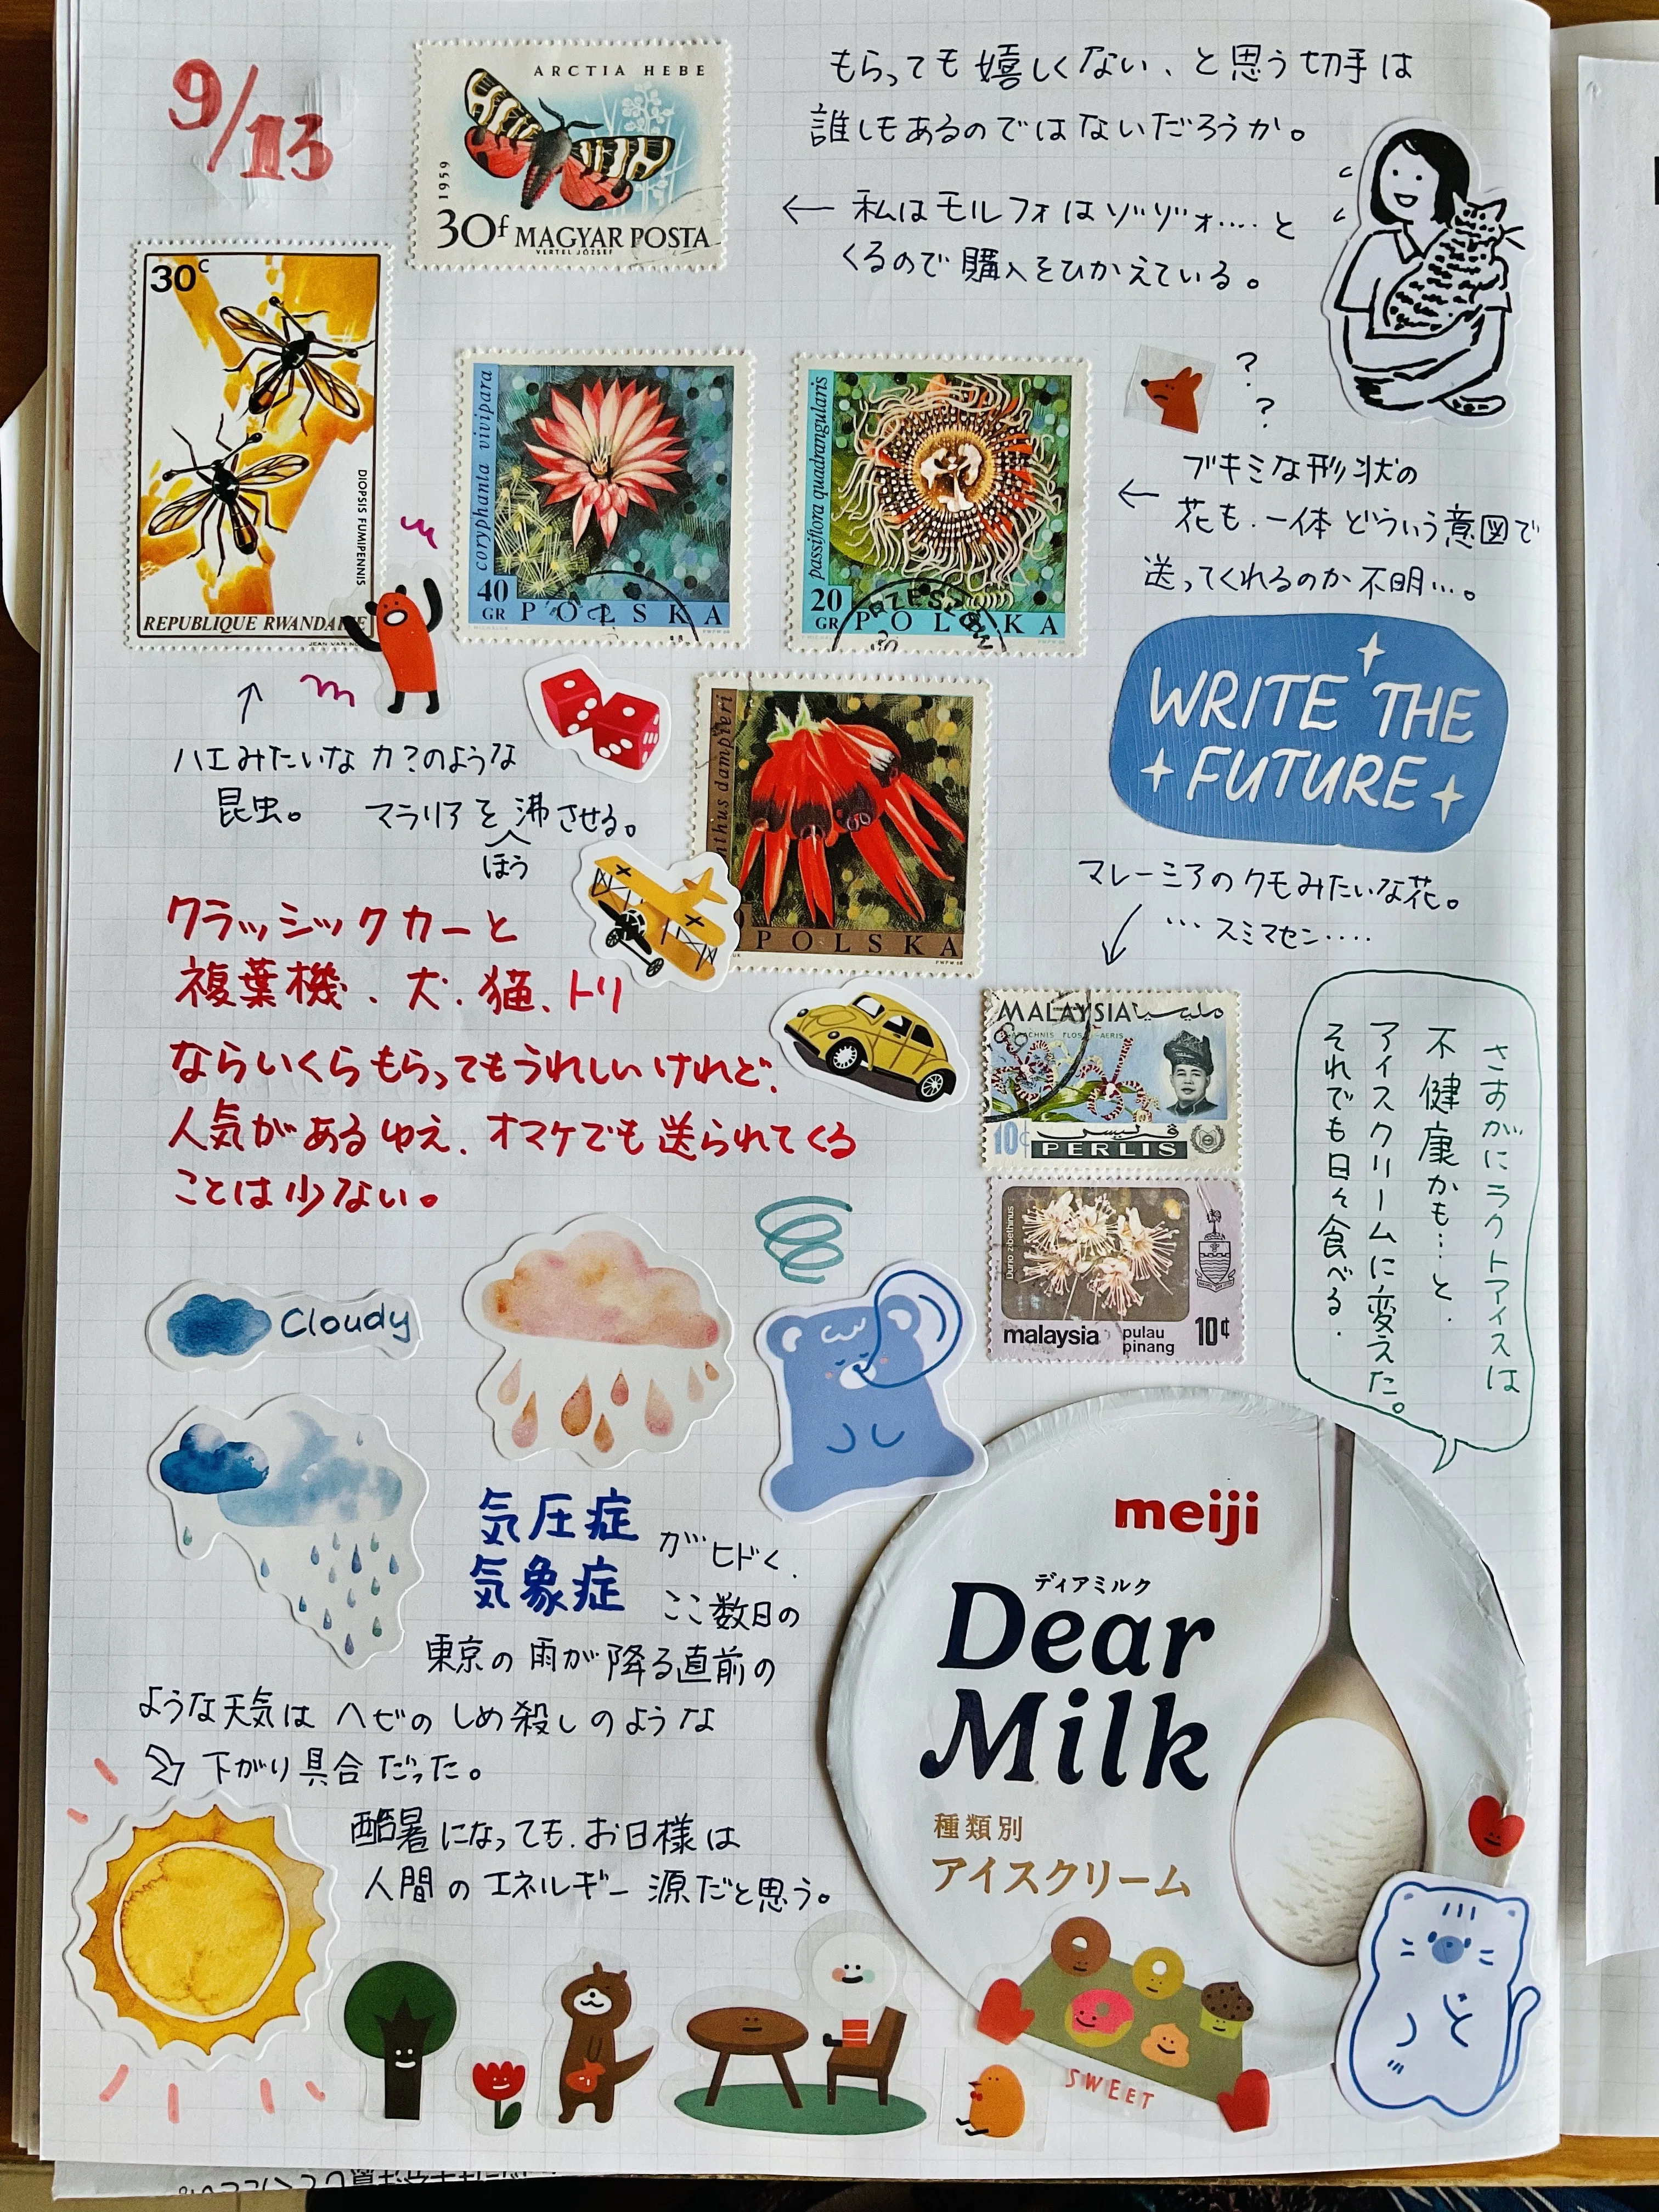 9/13
ARCTIA HEBE
1959
30f MAGYAR POSTA
VERTEL JÓZSEF
もらっても嬉しくない、と思う切手は
誰しもあるのではないだろうか。
← 私はモルフォはゾゾゾォ‥‥と
くるので購入をひかえている。
30c
DIOPSIS FUMIPENNIS
REPUBLIQUE RWANDAISE
coryphanta vivipara
40 GR POLSKA
passiflora quadrangularis
20 GR POLSKA
? ?
ブキミな形状の
← 花も、一体どういう意図で
送ってくれるのか不明…。
WRITE THE
FUTURE
↑
ハエみたいな力?のような
昆虫。 マラリアを沸させる。
ほう
nthus dampieri
POLSKA
マレーミアのクモみたいな花。
… スミマセン‥‥
クラッシックカーと
複葉機、犬、猫、トリ
ならいくらもらってもうれしいけれど、
人気があるゆえ、オマケでも送られてくる
ことは少ない。
MALAYSIA مليسيا
10¢ PERLIS
فرليس
Durio zibethinus
malaysia pulau pinang 10¢
さすがにラクトアイスは
不健康かも…と、
アイスクリームに変えた。
それでも日々食べる.
Cloudy
気圧症
気象症
がヒドく、
ここ数日の
東京の雨が降る直前の
ような天気はヘビのしめ殺しのような
下がり具合だった。
酷暑になっても、お日様は
人間のエネルギー源だと思う。
meiji
ディアミルク
Dear
Milk
種類別
アイスクリーム
SWEET